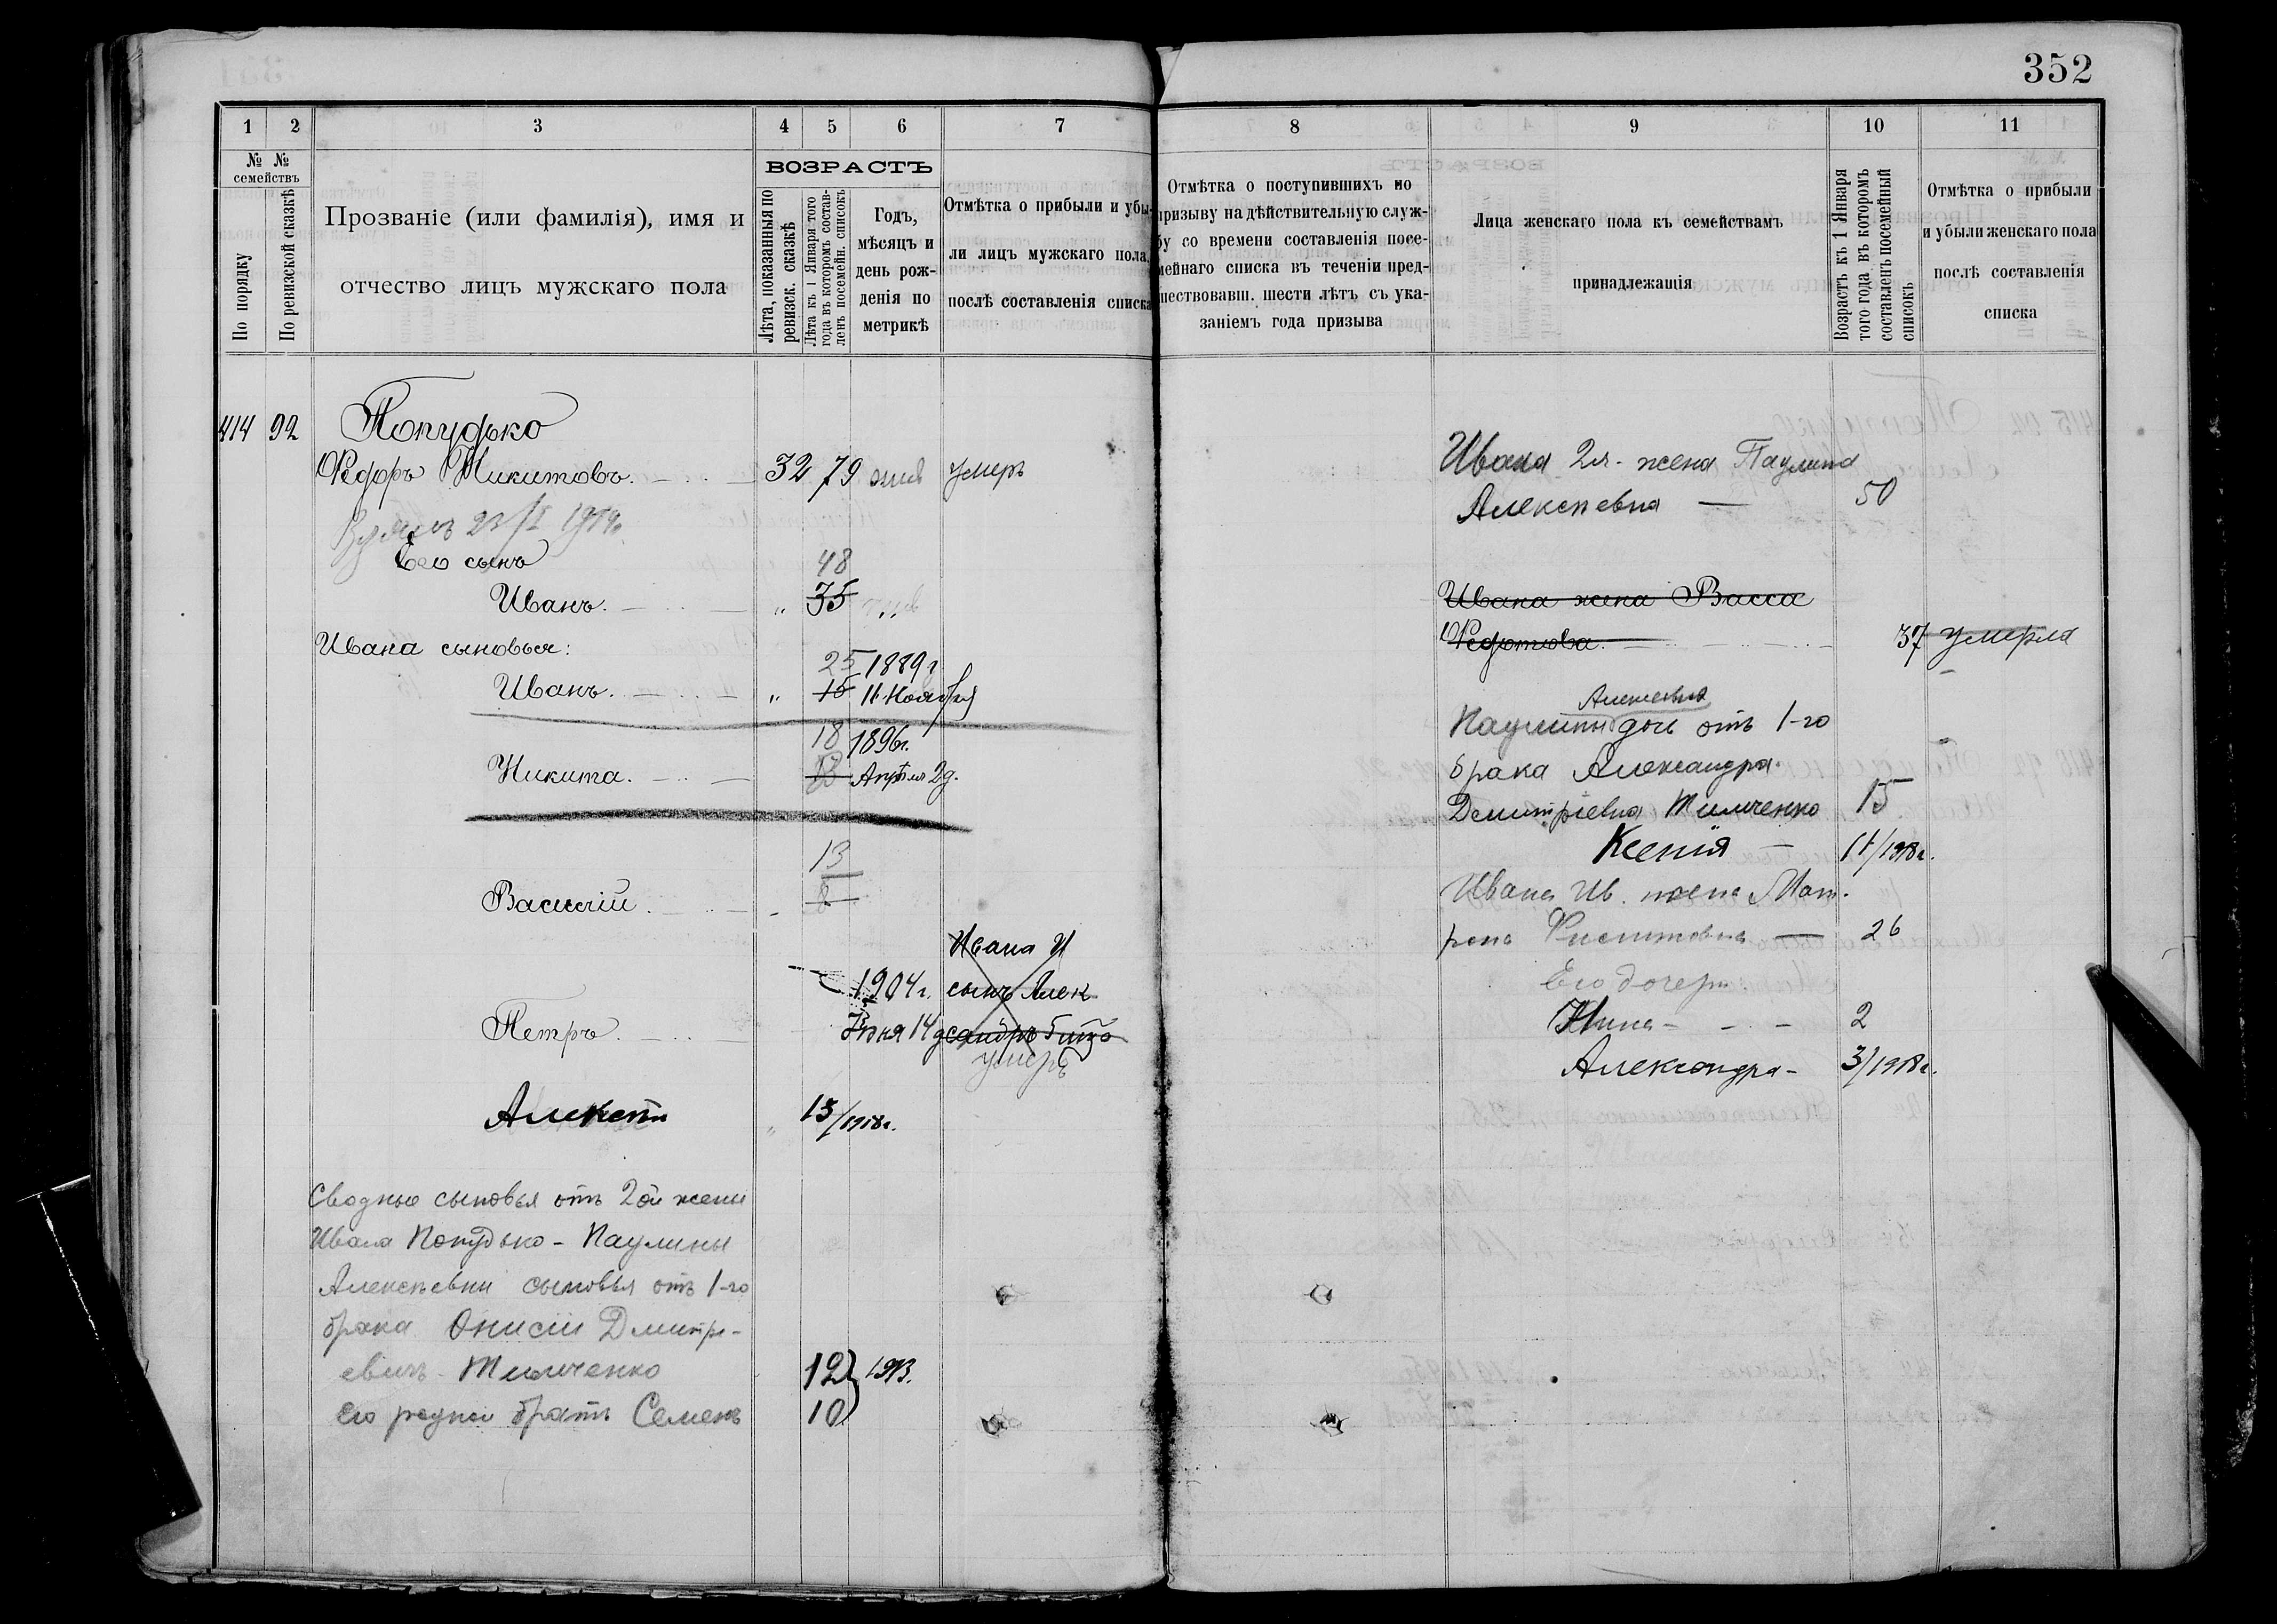 352
1 2 3 4 5 6 7 8 9 10 11
№ №
семействъ
По порядку
По ревизской сказкѣ
Прозваніе (или фамилія), имя и
отчество лицъ мужскаго пола
ВОЗРАСТЪ
Лѣта, показанныя по
ревизск. сказкѣ
Лѣта къ 1 Января того
года въ которомъ состав-
ленъ посемейн. списокъ
Годъ,
мѣсяцъ и
день рож-
денія по
метрикѣ
Отмѣтка о прибыли и убы-
ли лицъ мужскаго пола,
послѣ составленія списка
Отмѣтка о поступившихъ по
призыву на дѣйствительную служ-
бу со времени составленія посе-
мейнаго списка въ теченіи пред-
шествовавш. шести лѣтъ съ ука-
заніемъ года призыва
Лица женскаго пола къ семействамъ
принадлежащія
Возрастъ къ 1 Января
того года въ которомъ
составленъ посемейный
списокъ
Отмѣтка о прибыли
и убыли женскаго пола
послѣ составленія
списка
414 92 Попудько
Ѳедоръ Никитовъ. 32 79 умеръ
Его сынъ
48
Иванъ. „ 35
Ивана сыновья:
25 1889 г
Иванъ. „ 15 11 Ноября
18 1896 г.
Никита. Апрѣля 2 д.
13
Василій. 8
Ивана И
1904 г. сынъ Алек
Петръ. Іюня 14 д
умеръ
Алексѣй 13/1918 г.
Сводные сыновья отъ 2ой жены
Ивана Попудько - Паулины
Алексѣевны сыновья отъ 1-го
брака Онисій Дмитрі-
евичъ Тимченко 12 1913.
Его родной братъ Семенъ 10
Ивана 2я. жена Паулина
Алексѣевна — 50
Ивана жена Васса
Ѳедотова 37 умерла
Алексѣевна
Паулины дочь отъ 1-го
брака Александра
Демитріевна Тимченко 15
Ксенія — 11/1918 г.
Ивана Ив. жена Мат-
рона — 26
Его дочери:
Нина - - - 2
Александра - 3/1918 г.